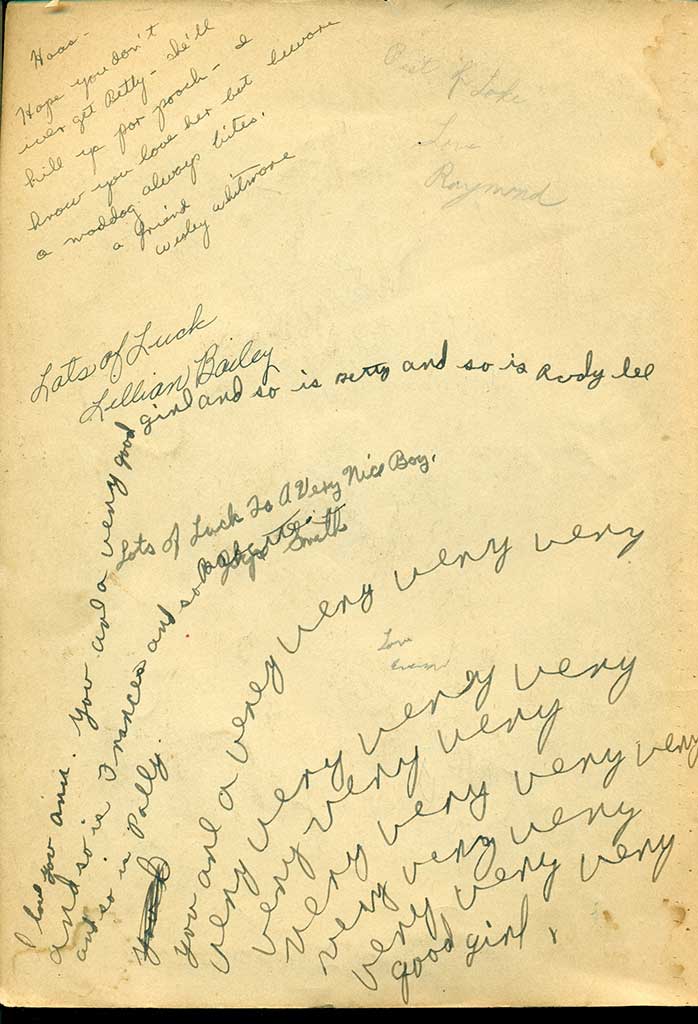 Haas-
Hope you don't
ever get Betty - she'll
kill yr par pooch - I
know you love her but beware
a maddog always bites.
a friend
Wesley Whitmore
Love
Raymond
Lots of Luck
Lillian Bailey
I love you ann. You are a very good girl and so is Betty and so is Rudy lee
and so is Frances and so
and so is Polly.
Lots of Luck To A Very Nice Boy.
Smith
Love
you are a very very very very very
very very very very
very very very
very very very very
very very very
very very very
good girl.